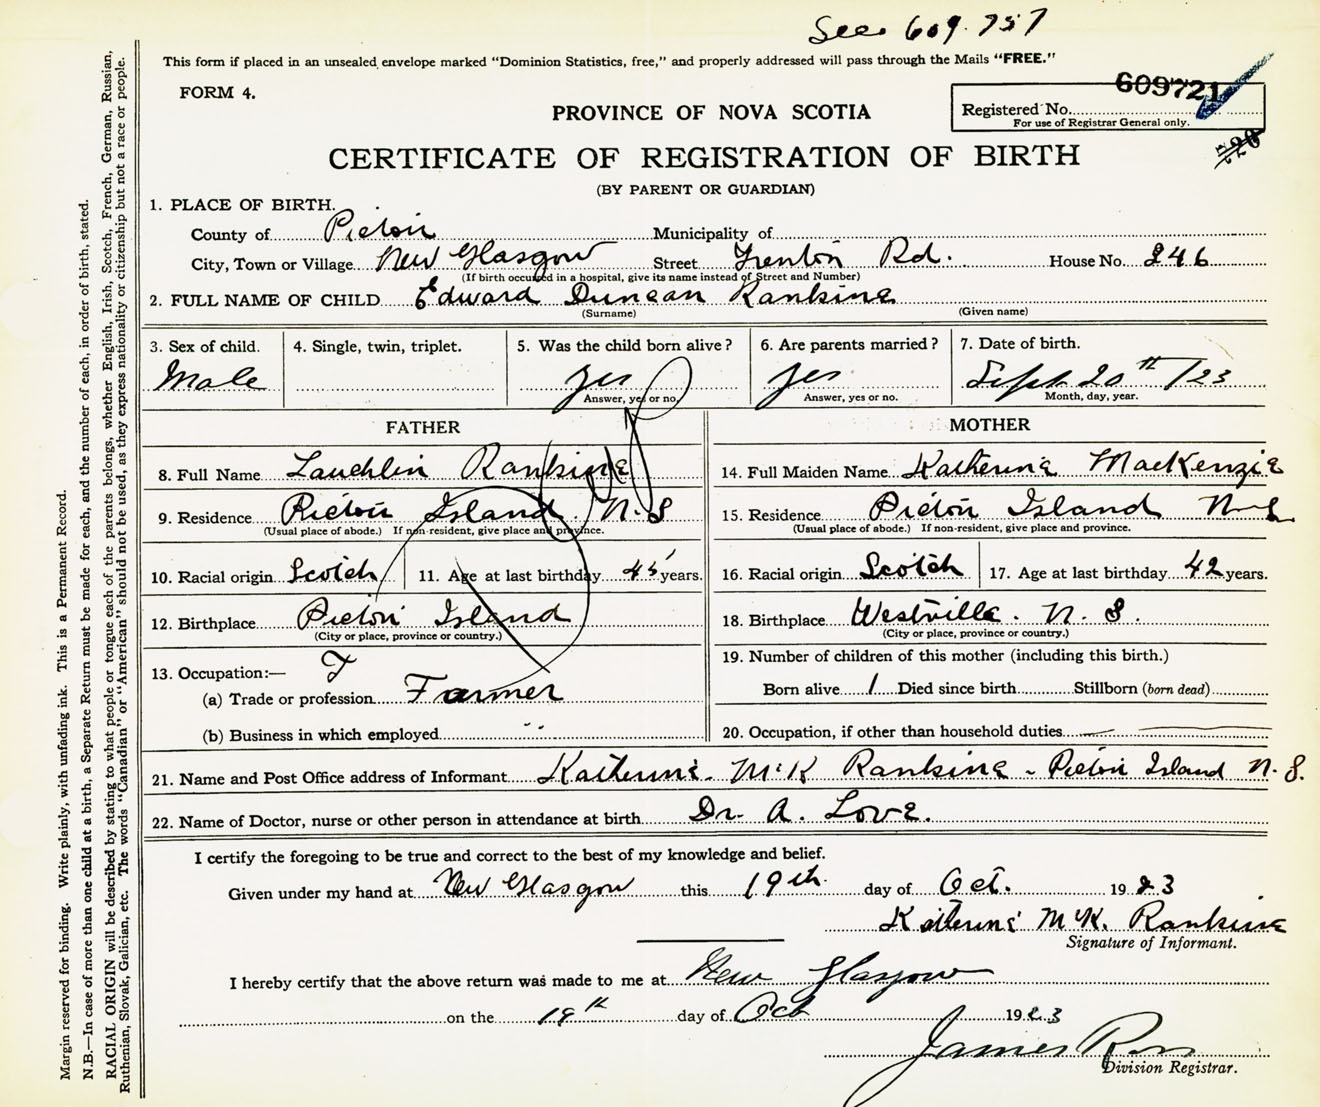 See 609.757
This form if placed in an unsealed envelope marked “Dominion Statistics, free,” and properly addressed will pass through the Mails “FREE.”
FORM 4.
609721
Registered No.
For use of Registrar General only.
PROVINCE OF NOVA SCOTIA
CERTIFICATE OF REGISTRATION OF BIRTH
(BY PARENT OR GUARDIAN)
1. PLACE OF BIRTH.
County of Pictou Municipality of
City, Town or Village New Glasgow Street Trenton Rd. House No. 246
(If birth occurred in a hospital, give its name instead of Street and Number)
2. FULL NAME OF CHILD Edward Duncan Rankine
(Surname) (Given name)
3. Sex of child. 4. Single, twin, triplet. 5. Was the child born alive? 6. Are parents married? 7. Date of birth.
Male yes yes Sept 20th/23
Answer, yes or no. Answer, yes or no. Month, day, year.
FATHER
8. Full Name Lauchlin Rankine
9. Residence Pictou Island. N.S
(Usual place of abode.) If non-resident, give place and province.
10. Racial origin Scotch 11. Age at last birthday 45 years.
12. Birthplace Pictou Island
(City or place, province or country.)
13. Occupation:—
(a) Trade or profession Farmer
(b) Business in which employed
MOTHER
14. Full Maiden Name Katherine MacKenzie
15. Residence Pictou Island N.S.
(Usual place of abode.) If non-resident, give place and province.
16. Racial origin Scotch 17. Age at last birthday 42 years.
18. Birthplace Westville. N.S.
(City or place, province or country.)
19. Number of children of this mother (including this birth.)
Born alive 1 Died since birth Stillborn (born dead)
20. Occupation, if other than household duties
21. Name and Post Office address of Informant Katherine McK Rankine - Pictou Island N.S.
22. Name of Doctor, nurse or other person in attendance at birth Dr. A. Love.
I certify the foregoing to be true and correct to the best of my knowledge and belief.
Given under my hand at New Glasgow this 19th day of Oct. 1923
Katherine McK. Rankine
Signature of Informant.
I hereby certify that the above return was made to me at New Glasgow
on the 19th day of Oct 1923
James Ross
Division Registrar.
Margin reserved for binding. Write plainly, with unfading ink. This is a Permanent Record.
N.B.—In case of more than one child at a birth, a Separate Return must be made for each, and the number of each, in order of birth, stated.
RACIAL ORIGIN will be described by stating to what people or tongue each of the parents belongs, whether English, Irish, Scotch, French, German, Russian,
Ruthenian, Slovak, Galician, etc. The words “Canadian” or “American” should not be used, as they express nationality or citizenship but not a race or people.